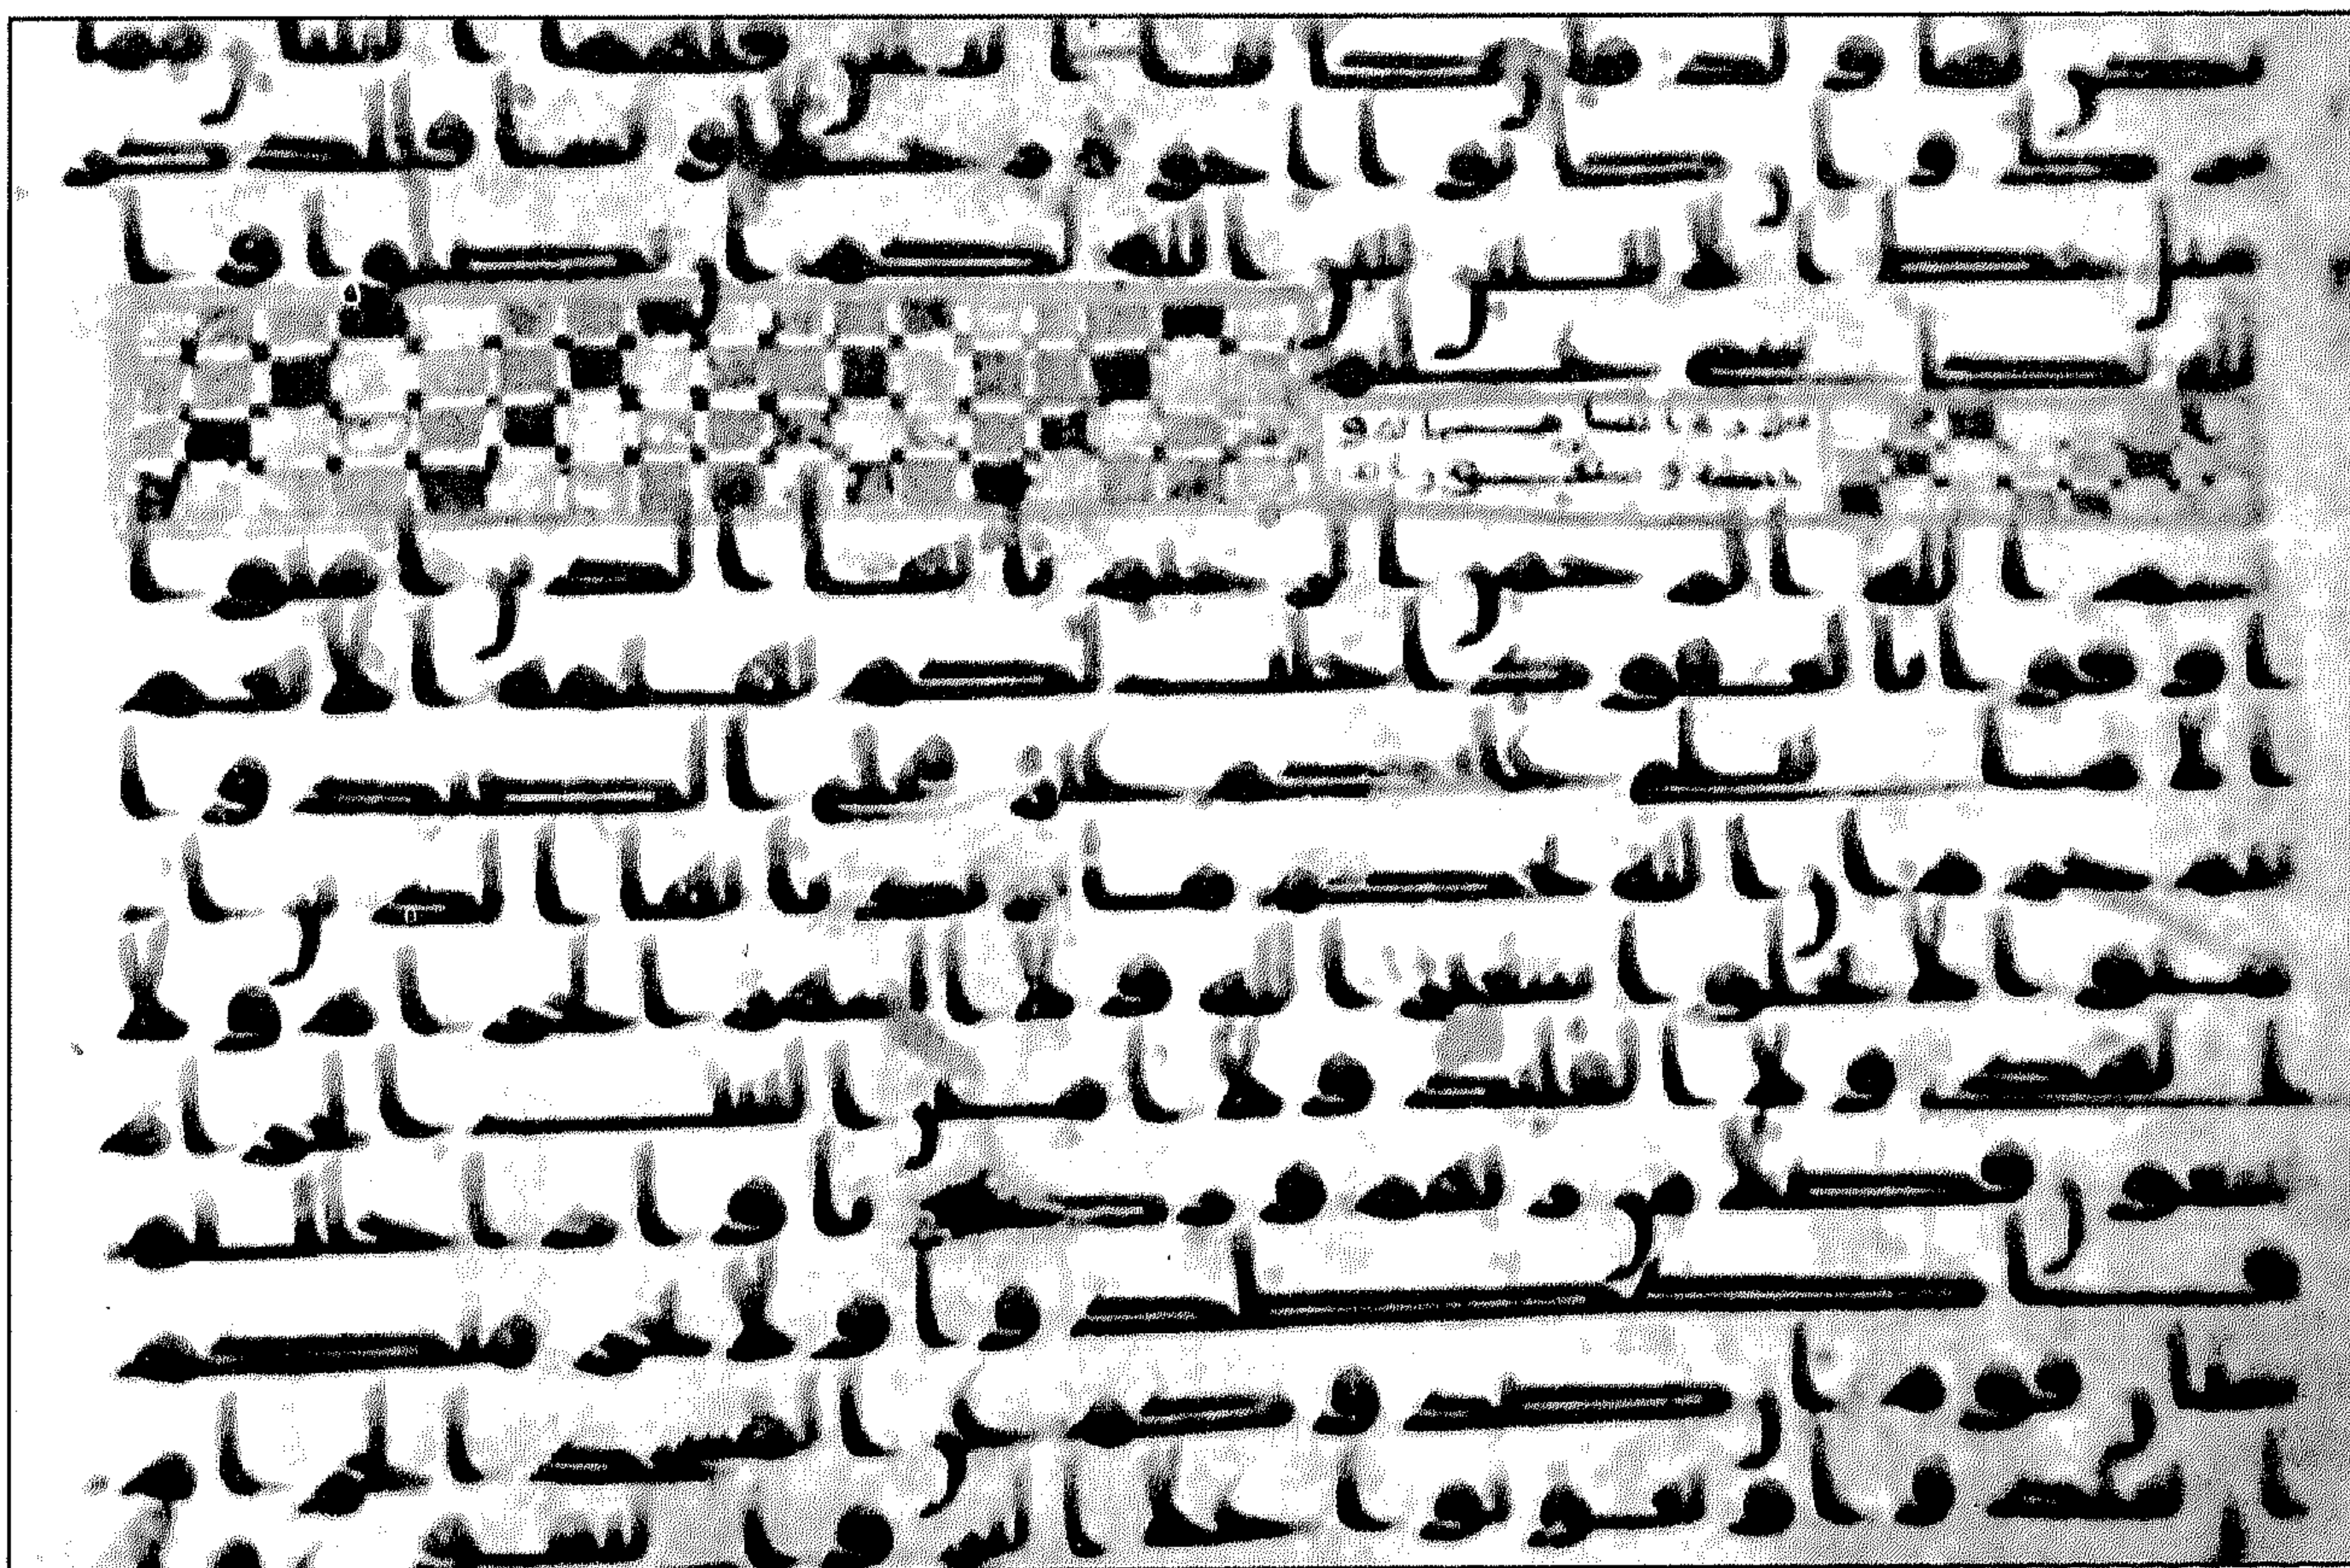 يكن لها ولد فان كانتا اثنتين فلهما الثلثن مما
ترك وان كانوا اخوة رجلا ونسا فللذكر
مثل حظ الانثيين يبين الله لكم ان تضلوا وا
لله بكل شى عليم
بسم الله الرحمن الرحيم يايها الذين امنوا
اوفوا بالعقود احلت لكم بهيمة الانعم
الا ما يتلى عليكم غير محلى الصيد وا
نتم حرم ان الله يحكم ما يريد يايها الذين ا
منوا لا تحلوا شعير الله ولا الشهر الحرام ولا
الهدى ولا القليد ولا امين البيت الحرام
يبتغون فضلا من ربهم ورضونا واذا حللتم
فاصطدوا ولا يجرمنكم
شنان قوم ان صدوكم عن المسجد الحرام
ان تعتدوا وتعاونوا على البر والتقوى